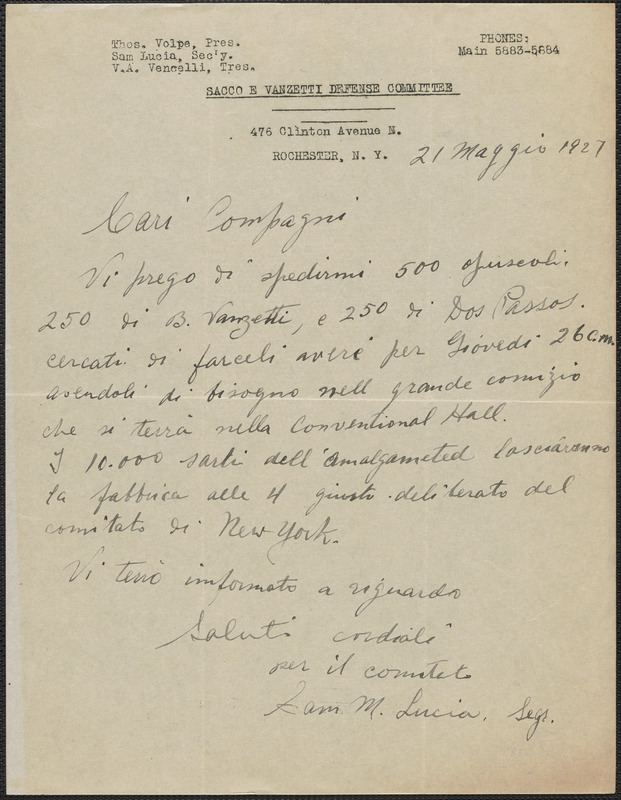 Thos. Volpe, Pres.
Sam Lucia, Sec'y.
V.A. Vencelli, Tres.
PHONES:
Main 5883-5884
SACCO E VANZETTI DEFENSE COMMITTEE
476 Clinton Avenue N.
ROCHESTER, N. Y. 21 Maggio 1927
Cari Compagni
Vi prego di spedirmi 500 opuscoli.
250 di B. Vanzetti, e 250 di Dos Passos.
cercati di farceli avere per Giovedi 26 c.m.
avendoli di bisogno nell grande comizio
che si terrà nella Conventional Hall.
I 10.000 sarti dell'amalgameted lasciaranno
la fabbrica alle 4 giusto deliberato del
comitato di New York.
Vi terrò imformato a riguardo
Saluti cordiali
per il comitato
Sam M. Lucia, Segr.